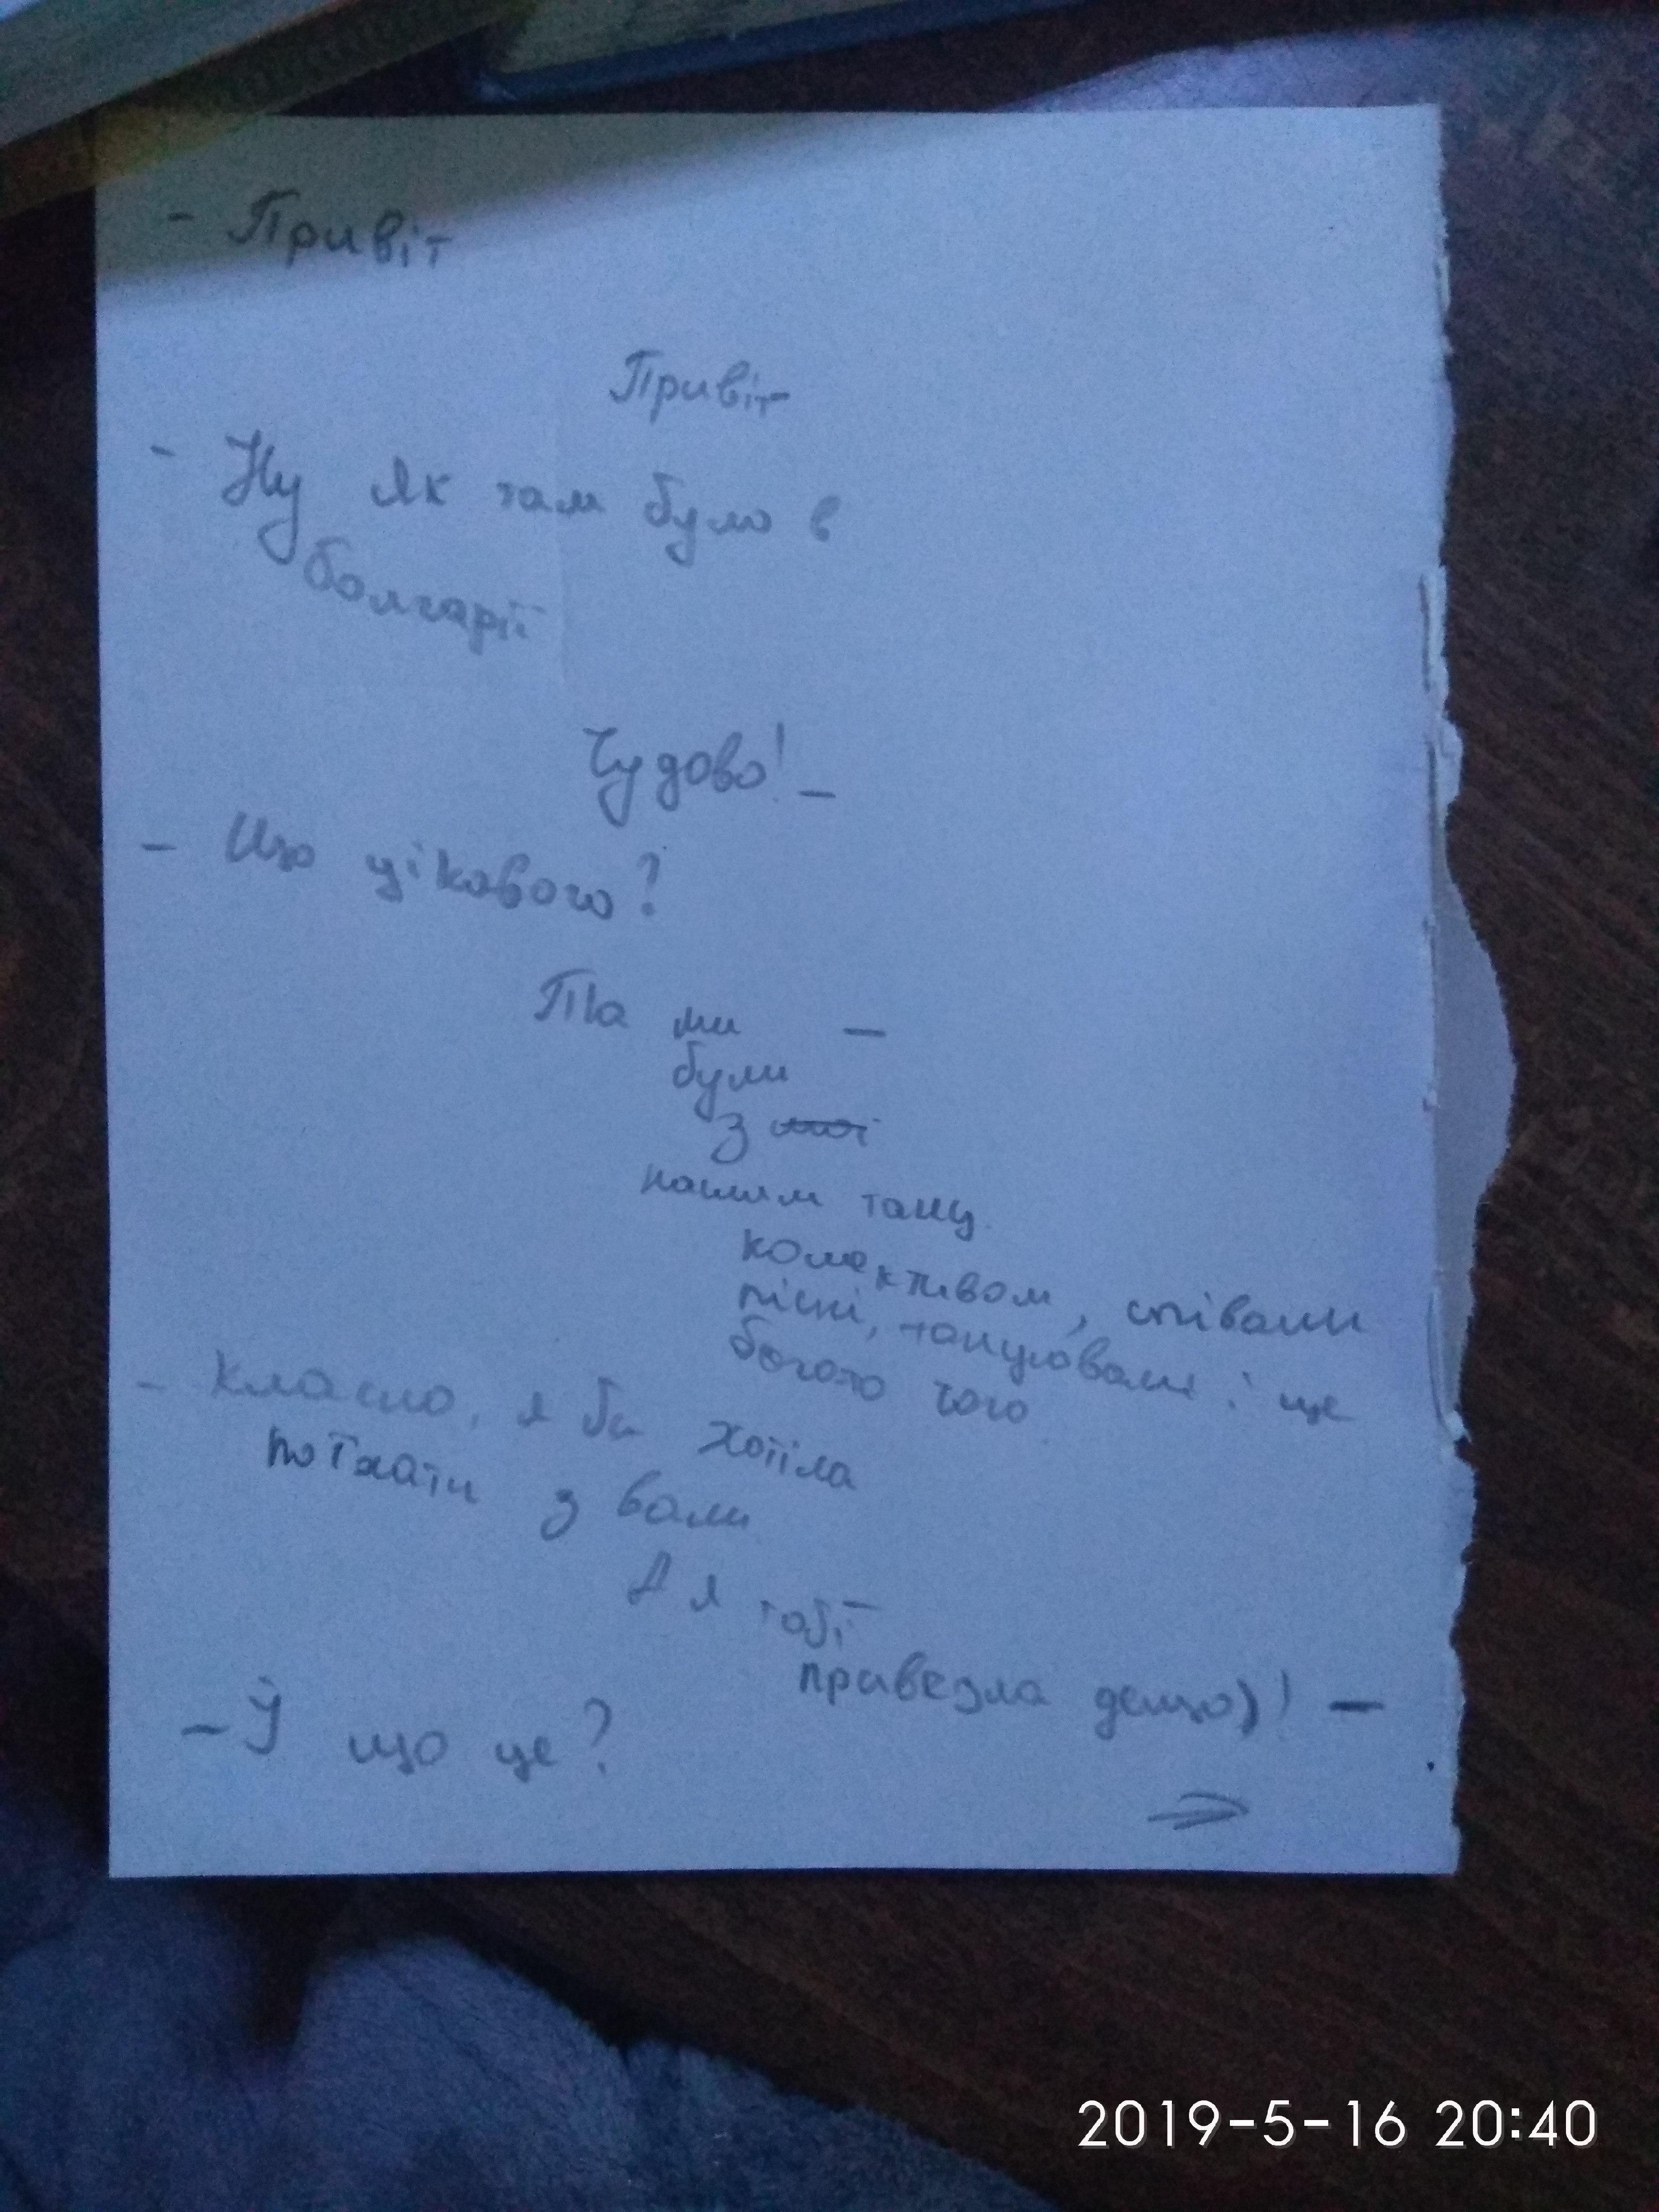 - Привіт
Привіт
- Ну як там було в
болгарії
Чудово! -
- Що цікавого?
Та ми -
були
з
нашим танц.
колективом, співали
пісні, танцювали і ще
богато чого
- Класно, я би хотіла
поїхати з вами
А я тобі -
привезла дещо)! -
- Й що це?
→
2019-5-16 20:40